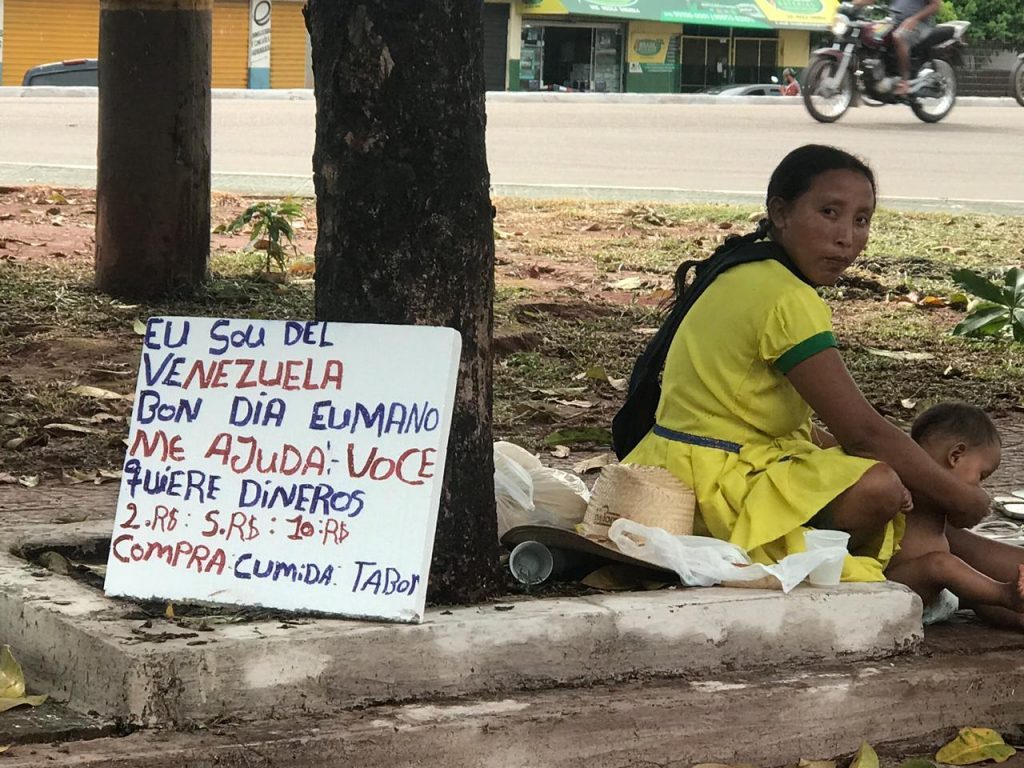 EU SOU DEL
VENEZUELA
BON DIA EUMANO
ME AJUDA: VOCE
QUIERE DINEROS
2.R$: 5.R$: 10:R$
COMPRA: CUMIDA: TABOI